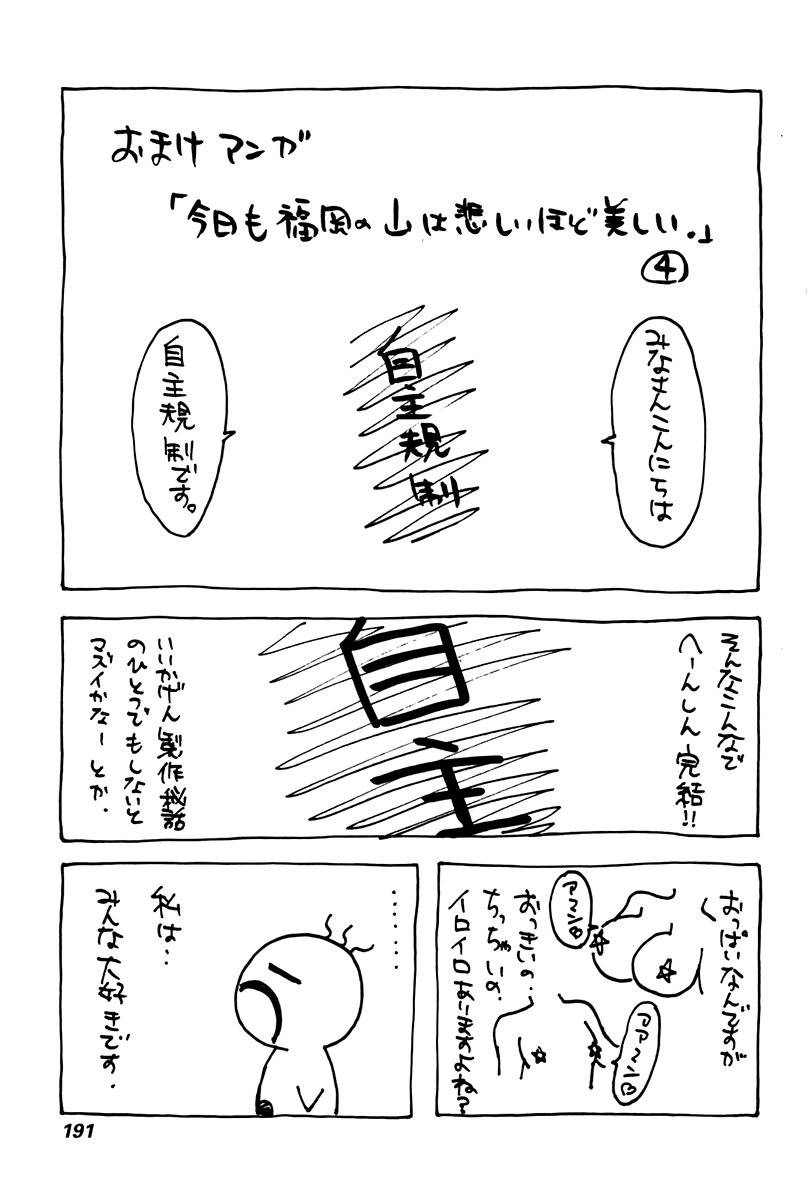 おまけマンガ
「今日も福岡の山は悲しいほど美しい。」
④
みなさんこんにちは
自主規制
自主規制です。
そんなこんなで
へーんしん完結!!
自主
いいかげん製作秘話
のひとつでもしないと
マズイかなーとか.
おっぱいなんですが
アハン
おっきいの..
ちっちゃいの.
イロイロありますよね?
........
私は..
みんな大好きです.
191